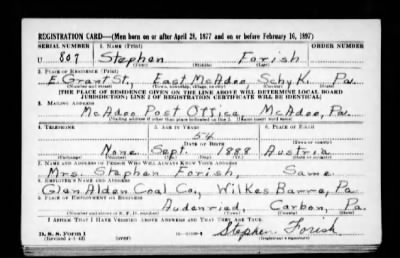 REGISTRATION CARD—(Men born on or after April 28, 1877 and on or before February 16, 1897)
SERIAL NUMBER 1. NAME (Print) ORDER NUMBER
U 807 Stephen Forish
(First) (Middle) (Last)
2. PLACE OF RESIDENCE (Print)
E. Grant St., East McAdoo Schylk. Pa.
(Number and street) (Town, township, village, or city) (County) (State)
[THE PLACE OF RESIDENCE GIVEN ON THE LINE ABOVE WILL DETERMINE LOCAL BOARD
JURISDICTION; LINE 2 OF REGISTRATION CERTIFICATE WILL BE IDENTICAL]
3. MAILING ADDRESS
McAdoo Post Office, McAdoo, Pa.
(Mailing address if other than place indicated on line 2. If same insert word same)
4. TELEPHONE 5. AGE IN YEARS 6. PLACE OF BIRTH
54
DATE OF BIRTH (Town or county)
None Sept. 1888 Austria
(Exchange) (Number) (Mo.) (Day) (Yr.) (State or country)
7. NAME AND ADDRESS OF PERSON WHO WILL ALWAYS KNOW YOUR ADDRESS
Mrs. Stephen Forish, Same
8. EMPLOYER'S NAME AND ADDRESS
Glen Alden Coal Co., Wilkes Barre, Pa.
9. PLACE OF EMPLOYMENT OR BUSINESS
Audenried, Carbon, Pa.
(Number and street or R. F. D. number) (Town) (County) (State)
I AFFIRM THAT I HAVE VERIFIED ABOVE ANSWERS AND THAT THEY ARE TRUE.
D. S. S. Form 1 Stephen Forish
(Revised 4-1-42) (over) (Registrant's signature)